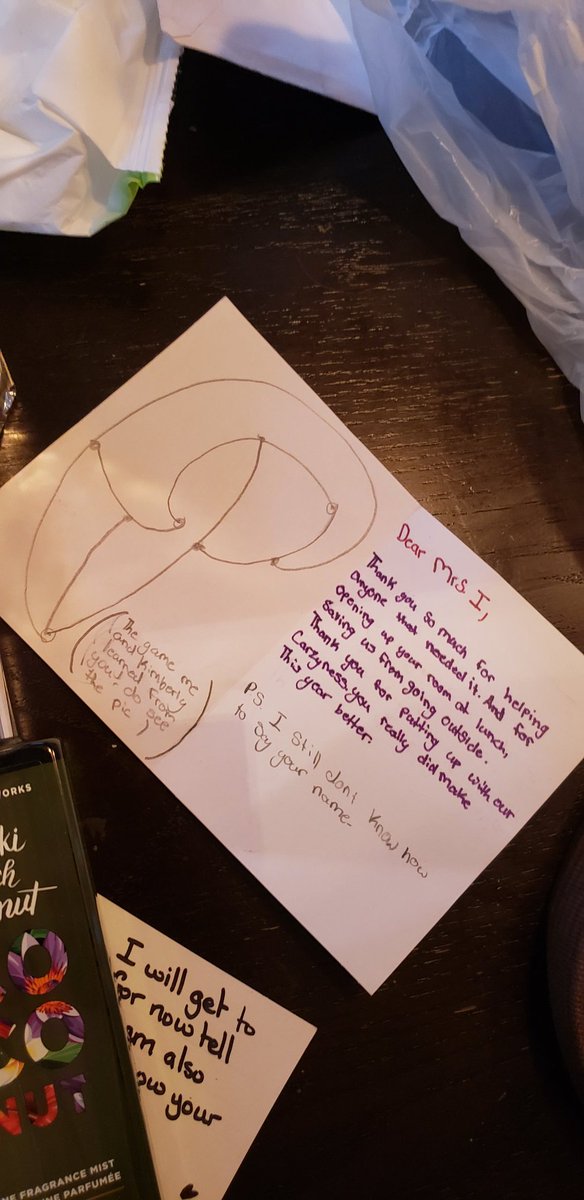 Dear Mrs I,
Thank you so much for helping
anyone that needed it. And for
opening up your room at lunch,
Saving us from going outside.
Thank you for putting up with our
Carzyness, you really did make
This year better.
PS. I still dont know how
to say your name.
The game me
and kimberly
learned from
you! do see
the pic
I will get to
for now tell
also
your
ORKS
NUT
FRAGRANCE MIST
PARFUMÉE